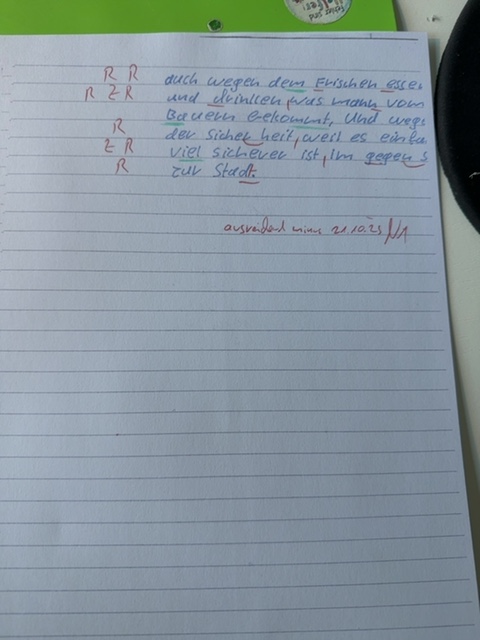 R R auch wegen dem Frischen essen
R Z R und drinken, was mann vom
Bauern bekommt, Und wege
R der Sicher heit, weil es einfa
Z R viel sicherer ist, im gegen s
R zur Stadt.
ausreichend minus 21.10.25